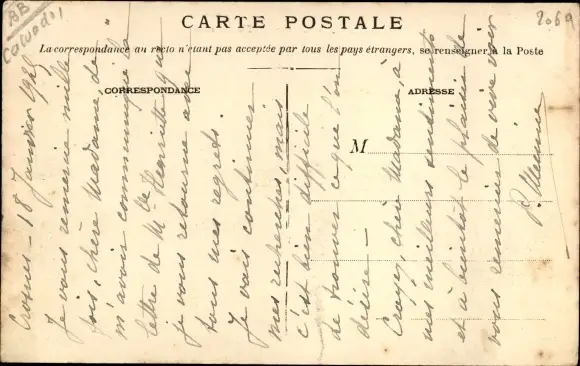 BB
Calvados
2069
CARTE POSTALE
La correspondance au recto n'étant pas acceptée par tous les pays étrangers, se renseigner à la Poste
CORRESPONDANCE
ADRESSE
M
Crosnes - 18 Janvier 1925
Je vous remercie mille
fois, chère Madame, de
m'avoir communiqué la
lettre de Mlle Henriette que
je vous retourne avec
tous mes regrets.
Je vais continuer
mes recherches, mais
c'est bien difficile
de trouver ce que l'on
désire -
Croyez, chère Madame, à
mes meilleurs sentiments
et à bientôt le plaisir de
vous remercier de vive voix